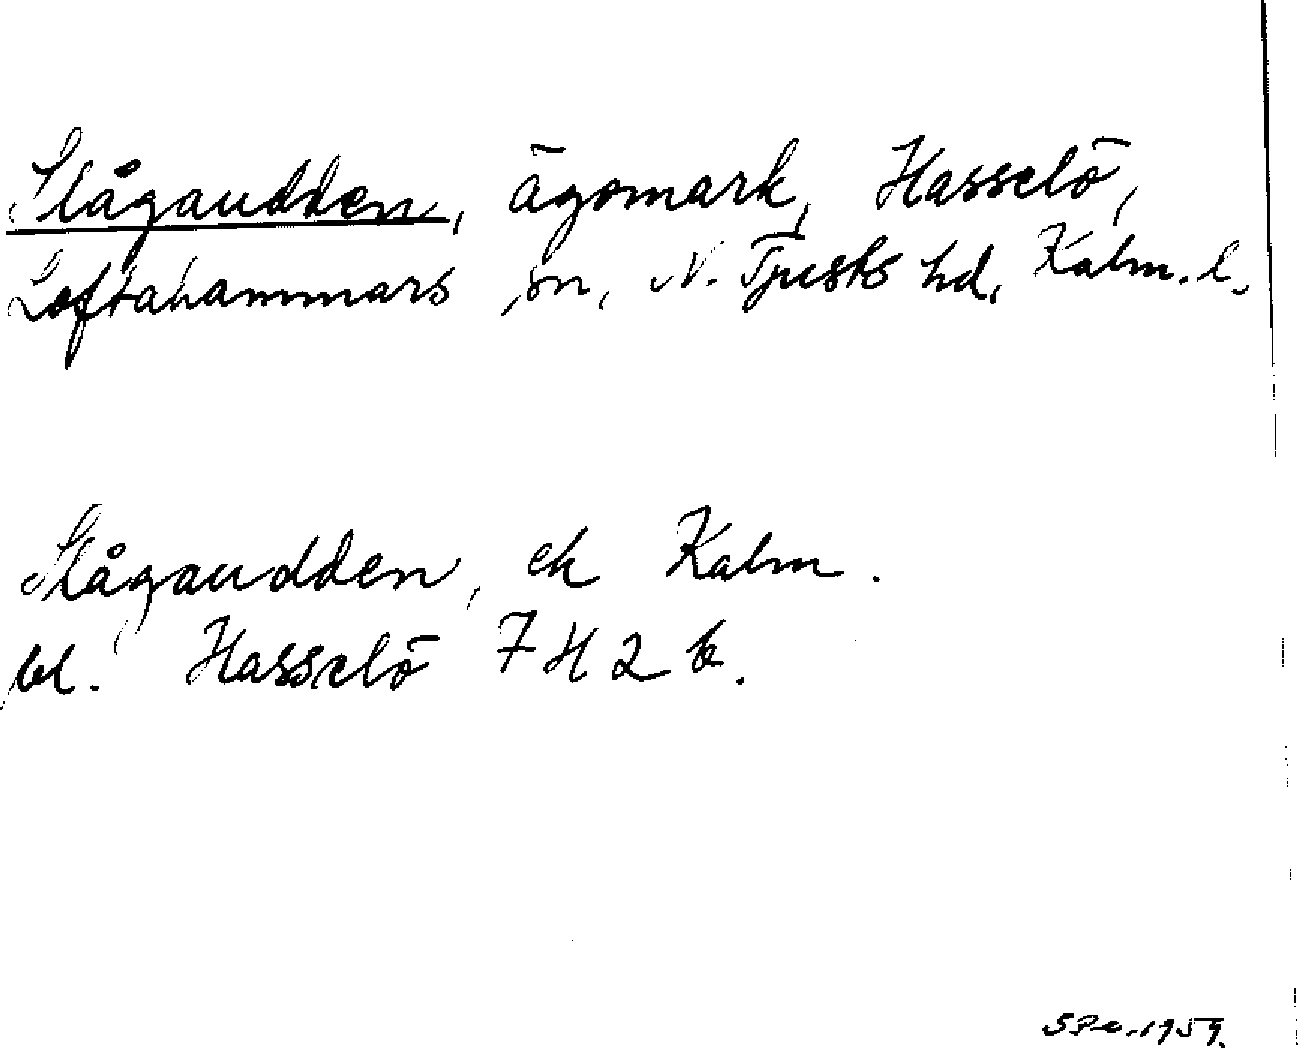 Slågaudden, ägomark, Hasselö,
Loftahammars sn, N. Tjusts hd, Kalm. l.
Slågaudden, ek Kalm.
bl. Hasselö 7 H 2 b.
1959.